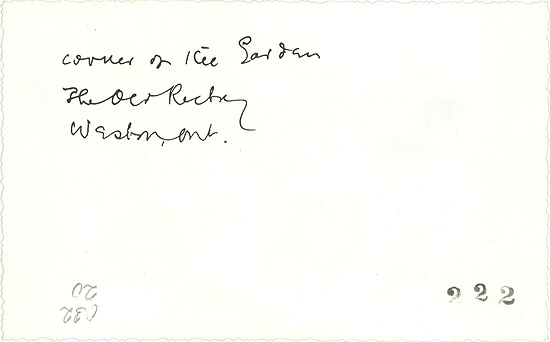 corner of the Garden
The Old Rectory
Weston, Ont.
222
20